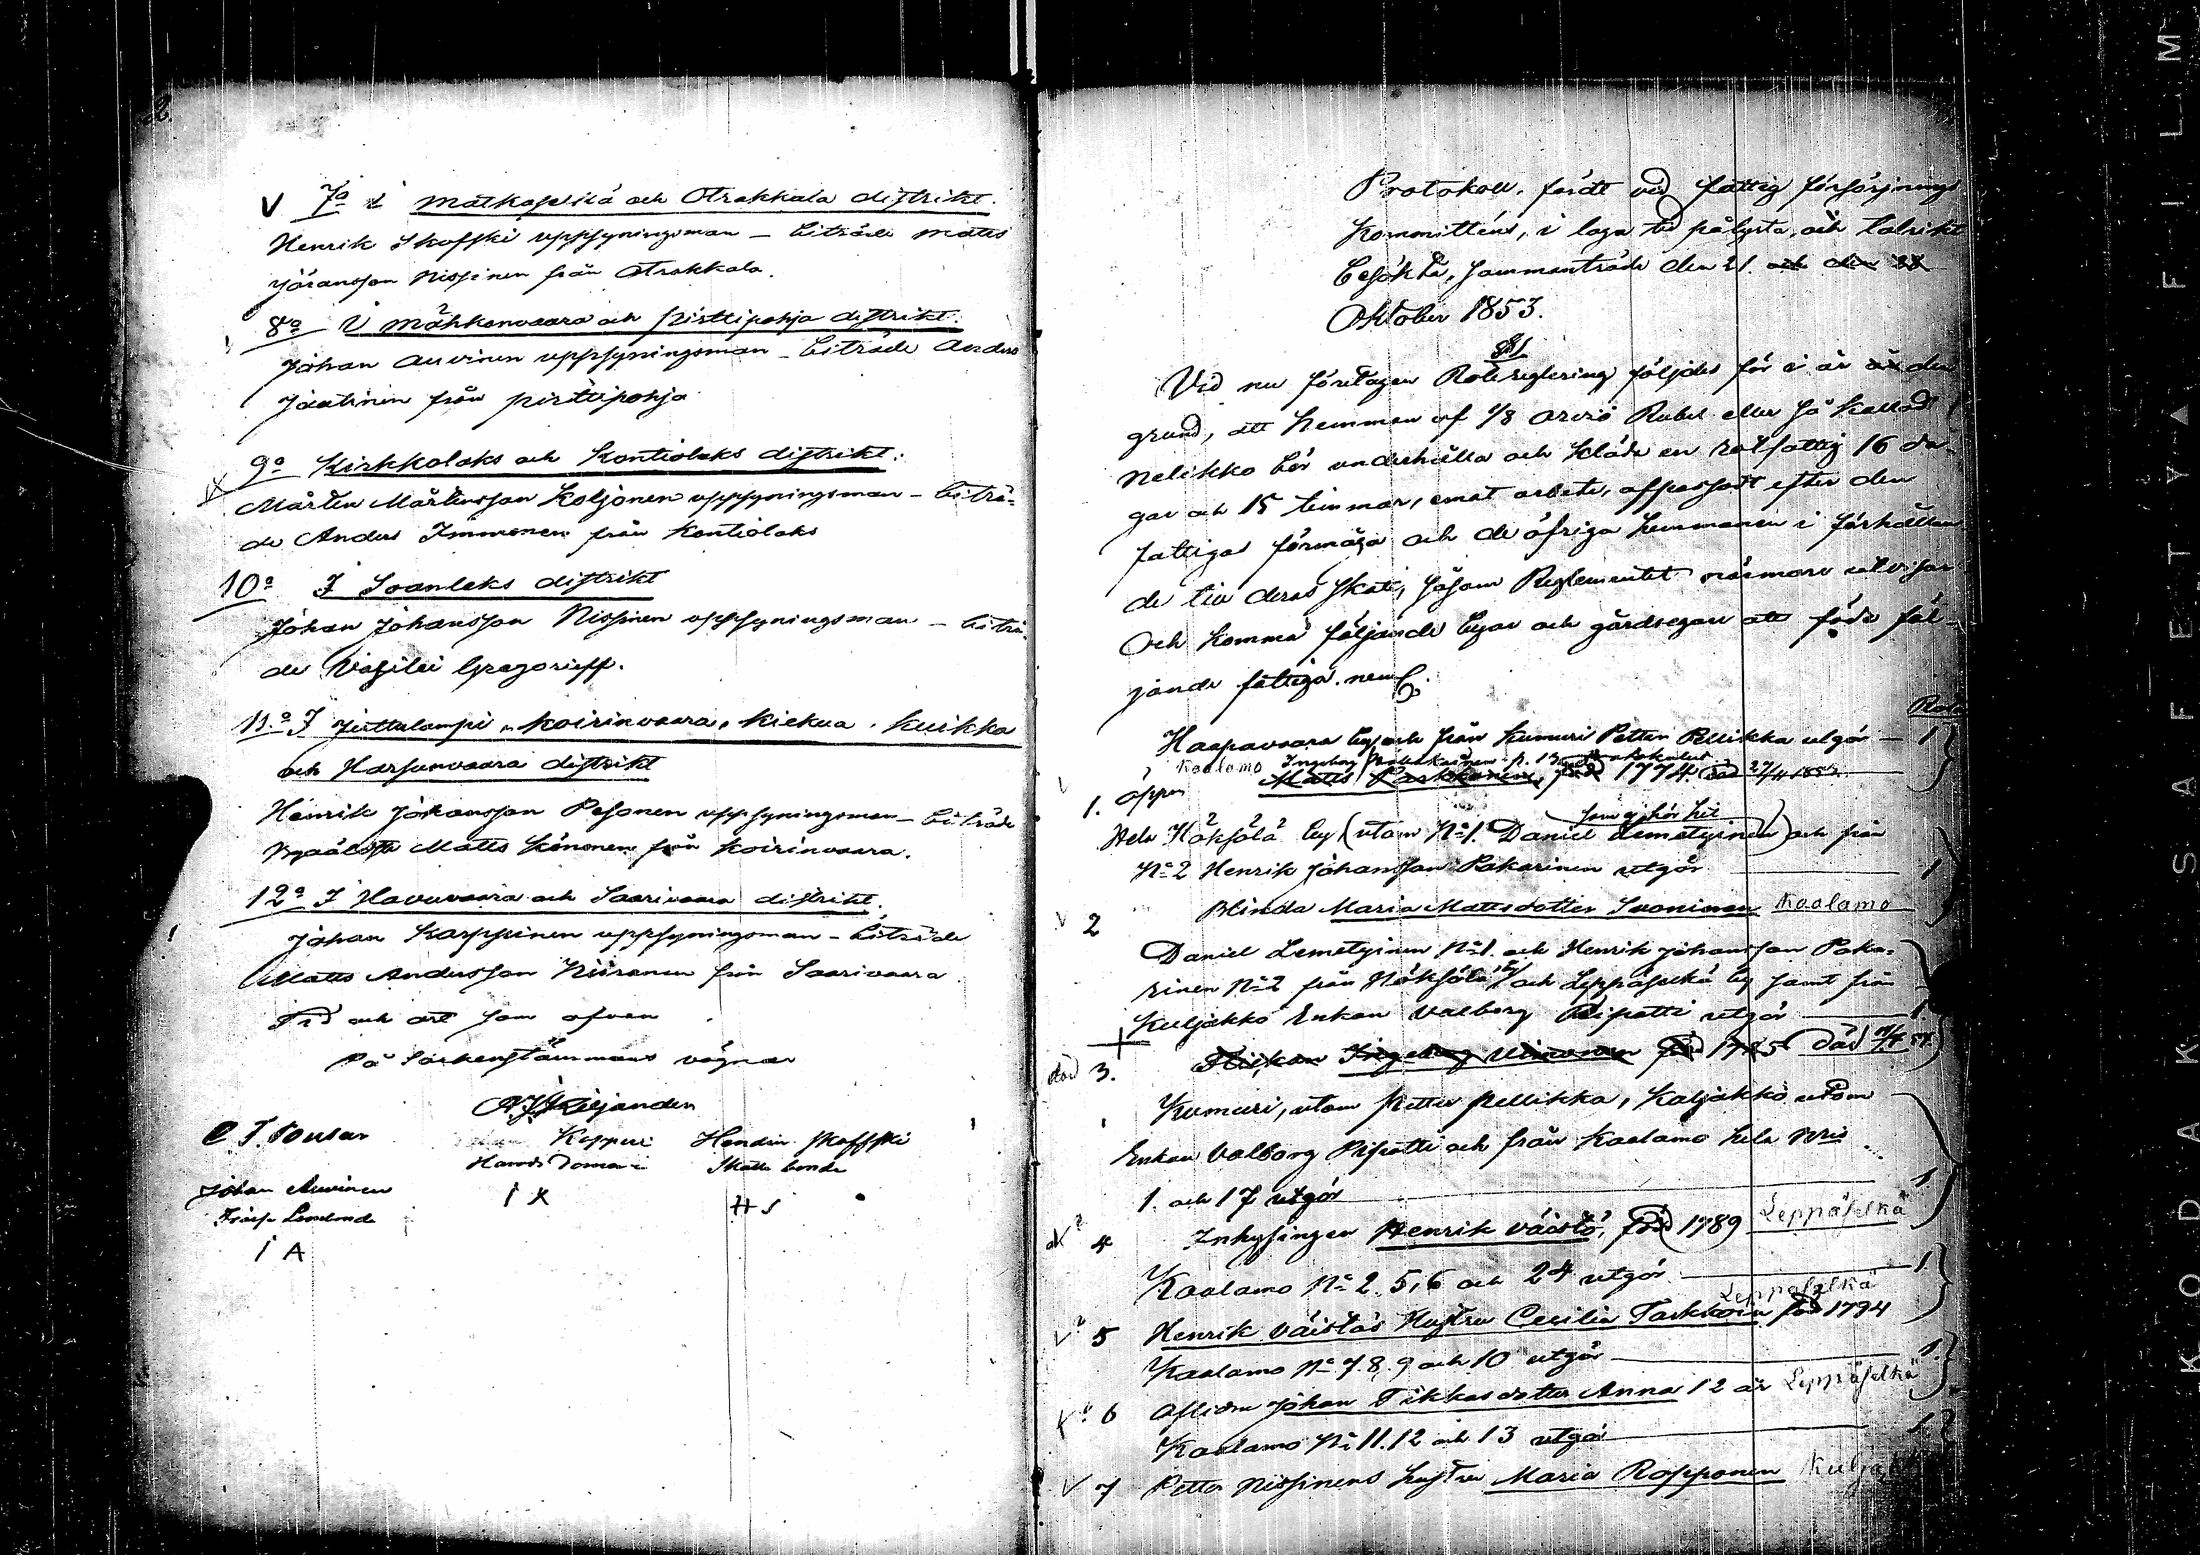 V 7o i Matkaselkä och Otrakkala distrikt.
Henrik Skoffski uppsyningsman – biträde Matts
Jöransson Nissinen från Otrakkala.
8o I Mähkenvaara och Pirttipohja distrikt.
Johan Auvinen uppsyningsman – biträde Anders
Jaatinen från Pirttipohja
9o Kirkkolaks och Kontiolaks distrikt.
Mårten Mårtensson Koljonen uppsyningsman – biträ-
de Anders Immonen från Kontiolaks
10o I Soanlaks distrikt
Johan Johansson Nissinen uppsyningsman – biträ-
de Vasilei Gregorieff.
11o I Jiuttulampi, Koirinvaara, Kiekua, Kuikka
och Harsunvaara distrikt
Henrik Johansson Pesonen uppsyningsman – biträde
Matts Könönen från Koirinvaara.
12o I Havuvaara och Saarivaara distrikt.
Johan Karppinen uppsyningsman – biträde
Matts Andersson Niiranen från Saarivaara
Tid och ort som ofvan
På Sockenstämmans vägnar
Kiljander
Kopperi Hendrik Skoffski
Skatte bonde
Johan Auvinen
I K H S
I A
Protokoll, fördt vid fattig försörjnings
Kommitténs, i laga tid pålysta, och talrikt
besökta, sammanträde den 21. och den 22
Oktober 1853.
§ 1
Vid nu företagen Rotereglering följdes för i år den
grund, att hemman af 1/8 arviö Rubel eller så kallad
nelikko bör underhålla och kläda en rotfattig 16 da-
gar och 15 timmar, emot arbete, afpassadt efter den
fattigas förmåga och de öfriga hemmanen i förhållan
de till deras skatt, såsom Reglementet närmare utvisar
Och komma följande byar och gårdsegare att föda föl-
jande fattiga. neml.
Haapavaara by och från Kumuri Petter Pellikka utgör – 1
Kaalamo Ingeborg
1. öppen Matts Parkkonen, född 1774 död 27/4 1855
som ej hör hit
Hela Höksölä by (utom No 1. Daniel Lemetyinen) och från
No 2 Henrik Johansson Pakarinen utgör 1
V 2 Blinda Maria Mattsdotter Suoninen Kaalamo
Daniel Lemetyinen No 1. och Henrik Johansson Paka-
rinen No 2 från Höksölä by och Leppäselkä by samt från
Kuljakko Enkan Valborg Pipatti utgör 1
död 3. Flickan Ingeborg född 1785 död
Kumuri, utom Petter Pellikka, Kuljakko utom
Enkan Valborg Pipatti och från Kaalamo hela Nris
1. och 17 utgör 1.
4 Inhysingen Henrik Väistö, född 1789 Leppäselkä
Kaalamo No 2. 5, 6 och 24 utgör 1
Leppäselkä
V 5 Henrik Väistös Hustru Cecilia Tarkkoin född 1794
Kaalamo No 7. 8. 9 och 10 utgör 1.
6 Aflidne Johan Tikkas dotter Anna 12 år Leppäselkä
Kaalamo No 11. 12 och 13 utgör 1.
V 7 Petter Nissinens hustru Maria Ropponen